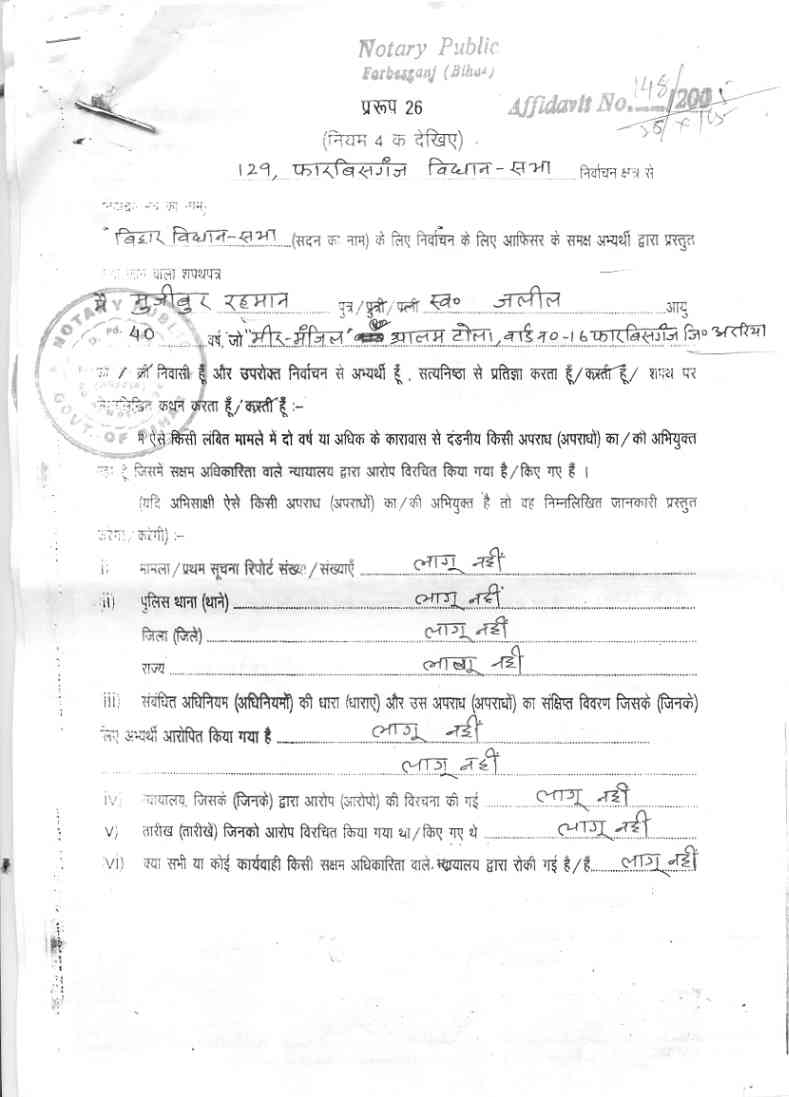 Notary Public
Farbesganj (Bihar)
प्ररूप 26
Affidavit No. 148/2005
(नियम 4 क देखिए)
129, फारबिसगंज विधान-सभा निर्वाचन क्षेत्र से
का नाम)
बिहार विधान-सभा (सदन का नाम) के लिए निर्वाचन के लिए आफिसर के समक्ष अभ्यर्थी द्वारा प्रस्तुत
वाला शपथपत्र
मै मुजीबुर रहमान पुत्र/पुत्री/पत्नी स्व० जलील आयु
40 वर्ष, जो "मीर-मंजिल" आलम टोला, वार्ड न०-16 फारबिसगंज जि० अररिया
का / की निवासी हूँ और उपरोक्त निर्वाचन से अभ्यर्थी हूँ, सत्यनिष्ठा से प्रतिज्ञा करता हूँ/करती हूँ/ शपथ पर
निम्नलिखित कथन करता हूँ/करती हूँ :–
NOTARY PUBLIC
GOVT. OF BIHAR
मै ऐसे किसी लंबित मामले में दो वर्ष या अधिक के कारावास से दंडनीय किसी अपराध (अपराधों) का/की अभियुक्त
जिसमें सक्षम अधिकारिता वाले न्यायालय द्वारा आरोप विरचित किया गया है/किए गए हैं ।
(यदि अभिसाक्षी ऐसे किसी अपराध (अपराधों) का/की अभियुक्त है तो वह निम्नलिखित जानकारी प्रस्तुत
करेगा/करेगी) :–
i) मामला/प्रथम सूचना रिपोर्ट संख्या/संख्याएँ लागू नहीं
ii) पुलिस थाना (थाने) लागू नहीं
जिला (जिले) लागू नहीं
राज्य लागू नहीं
iii) संबंधित अधिनियम (अधिनियमों) की धारा (धाराएं) और उस अपराध (अपराधों) का संक्षिप्त विवरण जिसके (जिनके)
लिए अभ्यर्थी आरोपित किया गया है लागू नहीं
लागू नहीं
iv) न्यायालय, जिसके (जिनके) द्वारा आरोप (आरोपो) की विरचना की गई लागू नहीं
v) तारीख (तारीखें) जिनको आरोप विरचित किया गया था/किए गए थे लागू नहीं
vi) क्या सभी या कोई कार्यवाही किसी सक्षम अधिकारिता वाले न्यायालय द्वारा रोकी गई है/हैं लागू नहीं